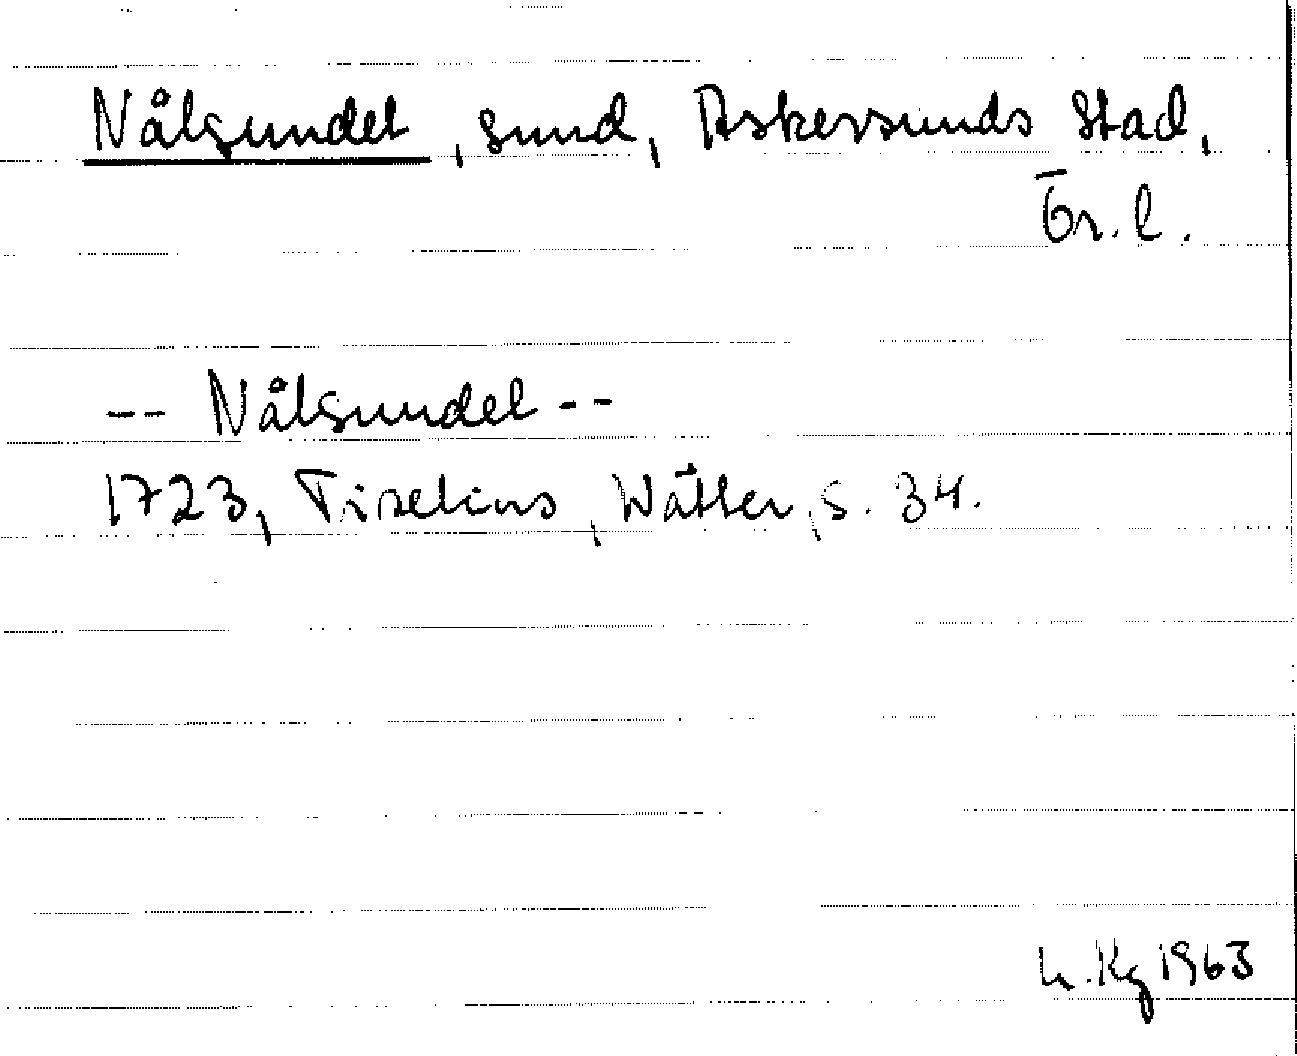 Nålsundet, sund, Askersunds stad,
Ör. l.
-- Nålsundet --
1723, Tiselius, Wätter, s. 34.
h. Kg 1963